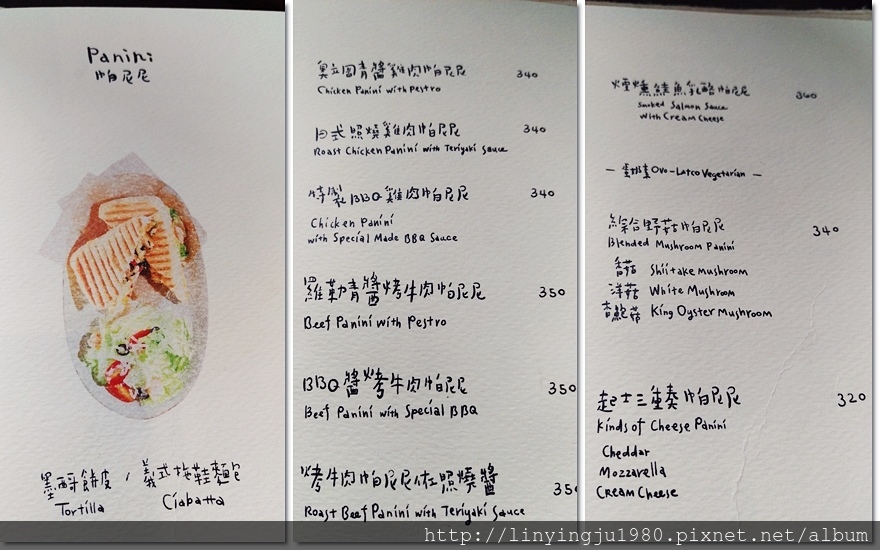 Panini
帕尼尼
墨西哥餅皮 / 義式拖鞋麵包
Tortilla Ciabatta
奧立岡青醬雞肉帕尼尼 340
Chicken Panini with Pestro
日式照燒雞肉帕尼尼 340
Roast Chicken Panini with Teriyaki Sauce
特製BBQ雞肉帕尼尼 340
Chicken Panini
with Special Made BBQ Sauce
羅勒青醬烤牛肉帕尼尼 350
Beef Panini with Pestro
BBQ醬烤牛肉帕尼尼 350
Beef Panini with Special BBQ
烤牛肉帕尼尼佐照燒醬 35
Roast Beef Panini with Teriyaki Sauce
煙燻鮭魚乳酪帕尼尼 360
Smoked Salmon Sauce
with Cream Cheese
— 蛋奶素 Ovo-Latco Vegetarian —
綜合野菇帕尼尼 340
Blended Mushroom Panini
香菇 Shiitake Mushroom
洋菇 White Mushroom
杏鮑菇 King Oyster Mushroom
起士三重奏帕尼尼 320
Kinds of Cheese Panini
Cheddar
Mozzarella
Cream Cheese
http://linyingju1980.pixnet.net/album